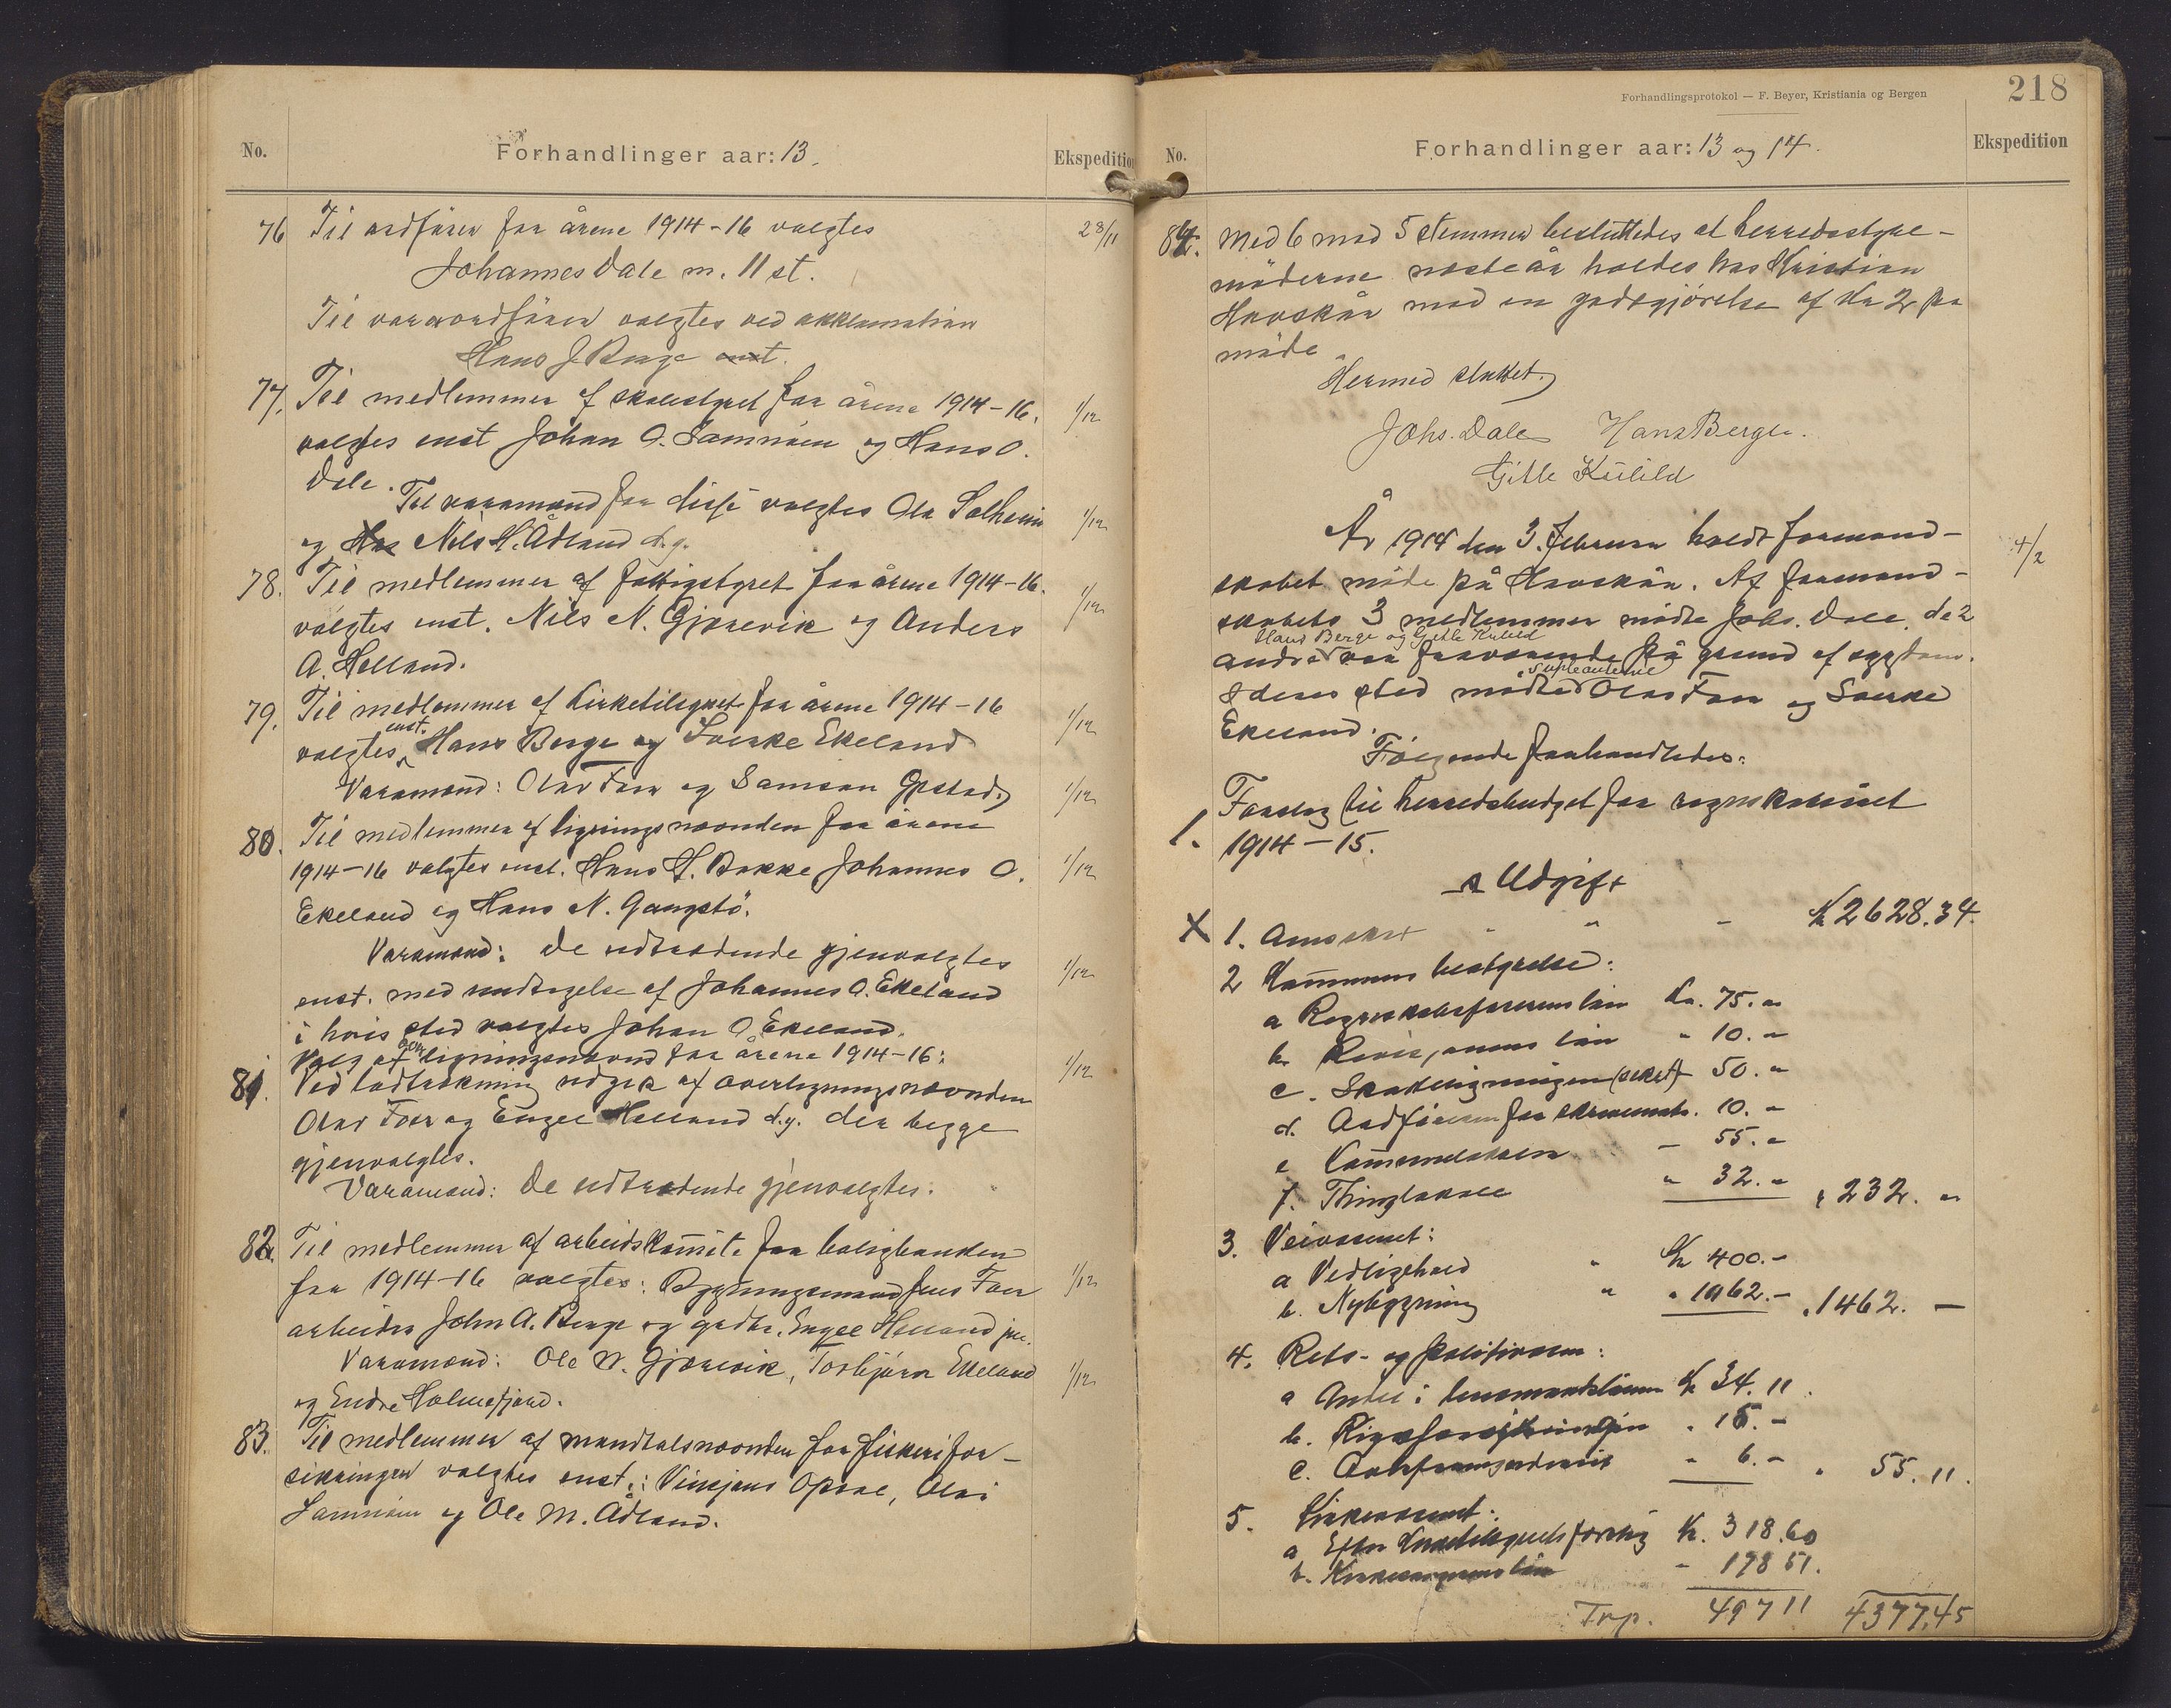 No.
Forhandlinger aar: 13.
Ekspedition
76 Til ordförer for årene 1914-16 valgtes 28/11
Johannes Dale m. 11 st.
Til varaordförer valgtes ved akklamation
Hans J. Berge enst.
77. Til medlemmer af skolestyret for årene 1914-16. 1/12
valgtes enst Johan O. Samnöen og Hans O.
Dale.
Til varamænd for disse valgtes Ola Solheim 1/12
og Has Nils H. Ådland d.y.
78. Til medlemmer af fattigstyret for årene 1914-16.
valgtes enst. Nils N. Gjærevik og Anders 1/12
A. Helland.
79. Til medlemmer af kirketilsynet for årene 1914-16 1/12
valgtes enst. Hans Berge og Sverke Ekeland
Varamænd: Olav Foer og Samson Opstad. 1/12
80. Til medlemmer af ligningsnævnden for årene
1914-16 valgtes enst. Hans H. Bakke Johannes O. 1/12
Ekeland og Hans N. Gangstö.
Varamænd: De udtrædende gjenvalgtes
enst. med undtagelse af Johannes O. Ekeland 1/12
i hvis sted valgtes Johan O Ekeland.
Valg af over ligningsnævnd for årene 1914-16:
81. Ved lodtrækning udgik af overligningsnævnden 1/12
Olav Foer og Engel Helland d.y. der begge
gjenvalgtes.
Varamænd: De udtrædende gjenvalgtes.
82. Til medlemmer af arbeidskomite for boligbanken
for 1914-16 valgtes: Bygningsmand Jens Foer 1/12
arbeider John A. Berge og grdbr. Engel Helland jr.
Varamænd: Ole N. Gjærevik, Torbjörn Ekeland 1/12
og Endre Holmefjord.
83. Til medlemmer af mandtalsnævnden for fiskerifor-
sikringen valgtes enst.: Vinsjans Opdal, Olai
Samnöen og Ole M. Ådland.
Forhandlingsprotokol — F. Beyer, Kristiania og Bergen
218
No.
Forhandlinger aar: 13 og 14.
Ekspedition
84. Med 6 mod 5 stemmer besluttedes at herredsstyre-
möderne næste år holdes hos Kristian
Havskår mod en godtgjörelse af Kr 2 pr
möde.
Hermed sluttet.
Johs. Dale Hans Berge.
Gitle Kulild
År 1914 den 3. februar holdt formand- 4/2
skabet möde på Havskår. Af formand-
skabets 3 medlemmer mödte Johs. Dale. de 2
Hans Berge og Gitle Kulild
andre var fraværende på grund af sygdom.
supleanterne
I deres sted mödte Olav Foer og Sverke
Ekeland.
Fölgende forhandledes:
1. Forslag til herredsbudget for regnskabsåret
1914-15.
Udgift
X 1. Amtsskat " " - Kr 2628.34.
2 Kommunens bestyrelse:
a Regnskabsförerens lön Kr. 75. "
b. Revisorens lön " 10. "
c. Skatteligningen (sekret) 50. "
d. Ordföreren for skrivemat. 10. "
e Kommunelokale - 55. "
f. Thinglokale " 32. " " 232. "
3. Veivæsenet:
a Vedligehold " Kr 400.-
b. Nybygning " " 1062.- " 1462. -
4. Rets- og politivæsen:
a Andel i lensmandslönnen Kr 34.11.
b. " 15.-
c. " 6.- " 55.11.
5. Kirkevæsenet:
a Efter kirketilsynets forslag Kr. 318.60
b. Kirkesangerens lön " 178 51.
Trp. 497 11 4377.45